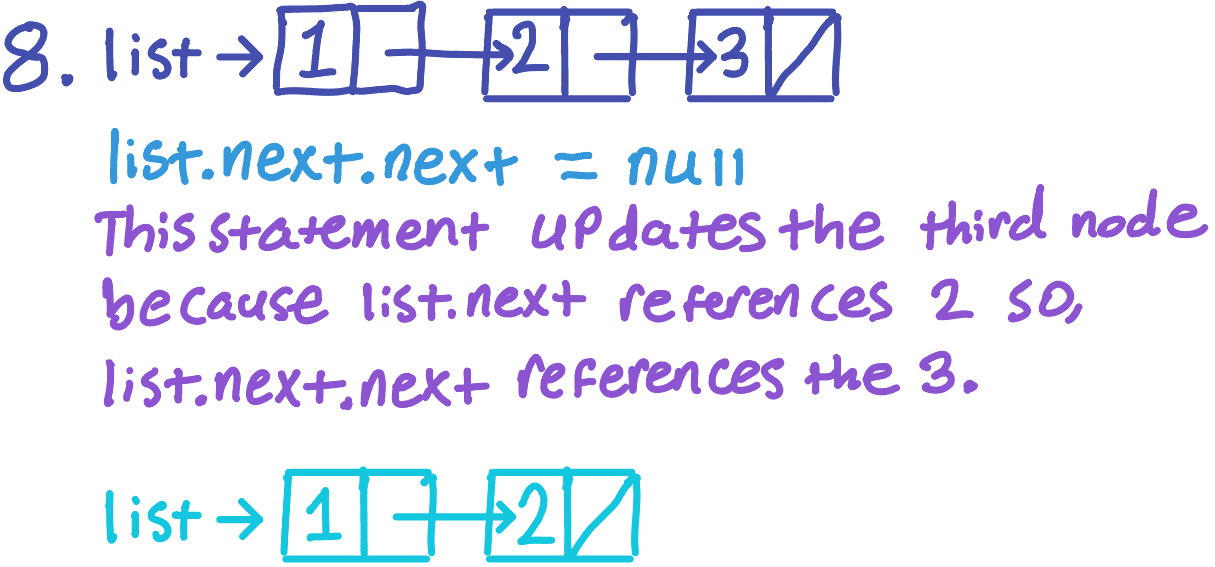 8. list → 1 2 3
list.next.next = null
This statement updates the third node
because list.next references 2 so,
list.next.next references the 3.
list → 1 2